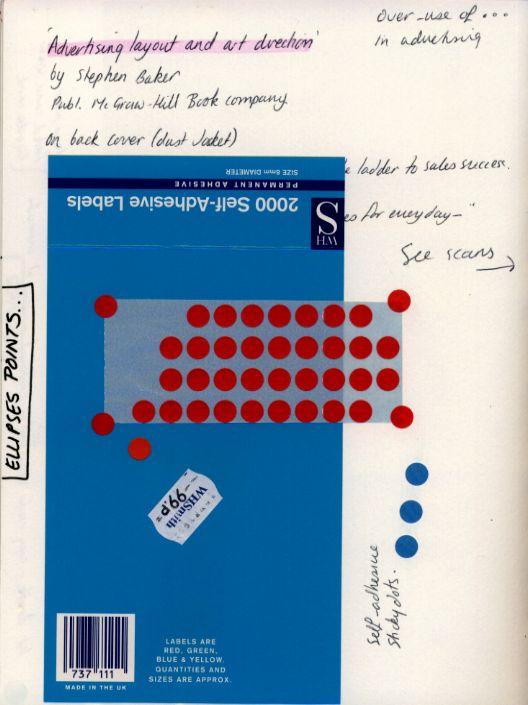 over-use of...
in advertising
'Advertising layout and art direction'
by Stephen Baker
Publ. McGraw-Hill Book company
on back cover (dust jacket)
ladder to sales success.
SIZE 8mm DIAMETER
PERMANENT ADHESIVE
2000 Self-Adhesive Labels
WH
S
es for everyday—"
See scans
ELLIPSES POINTS...
WHSmith
99P
self-adhesive
sticky dots.
737 111
MADE IN THE UK
LABELS ARE
RED, GREEN,
BLUE & YELLOW.
QUANTITIES AND
SIZES ARE APPROX.